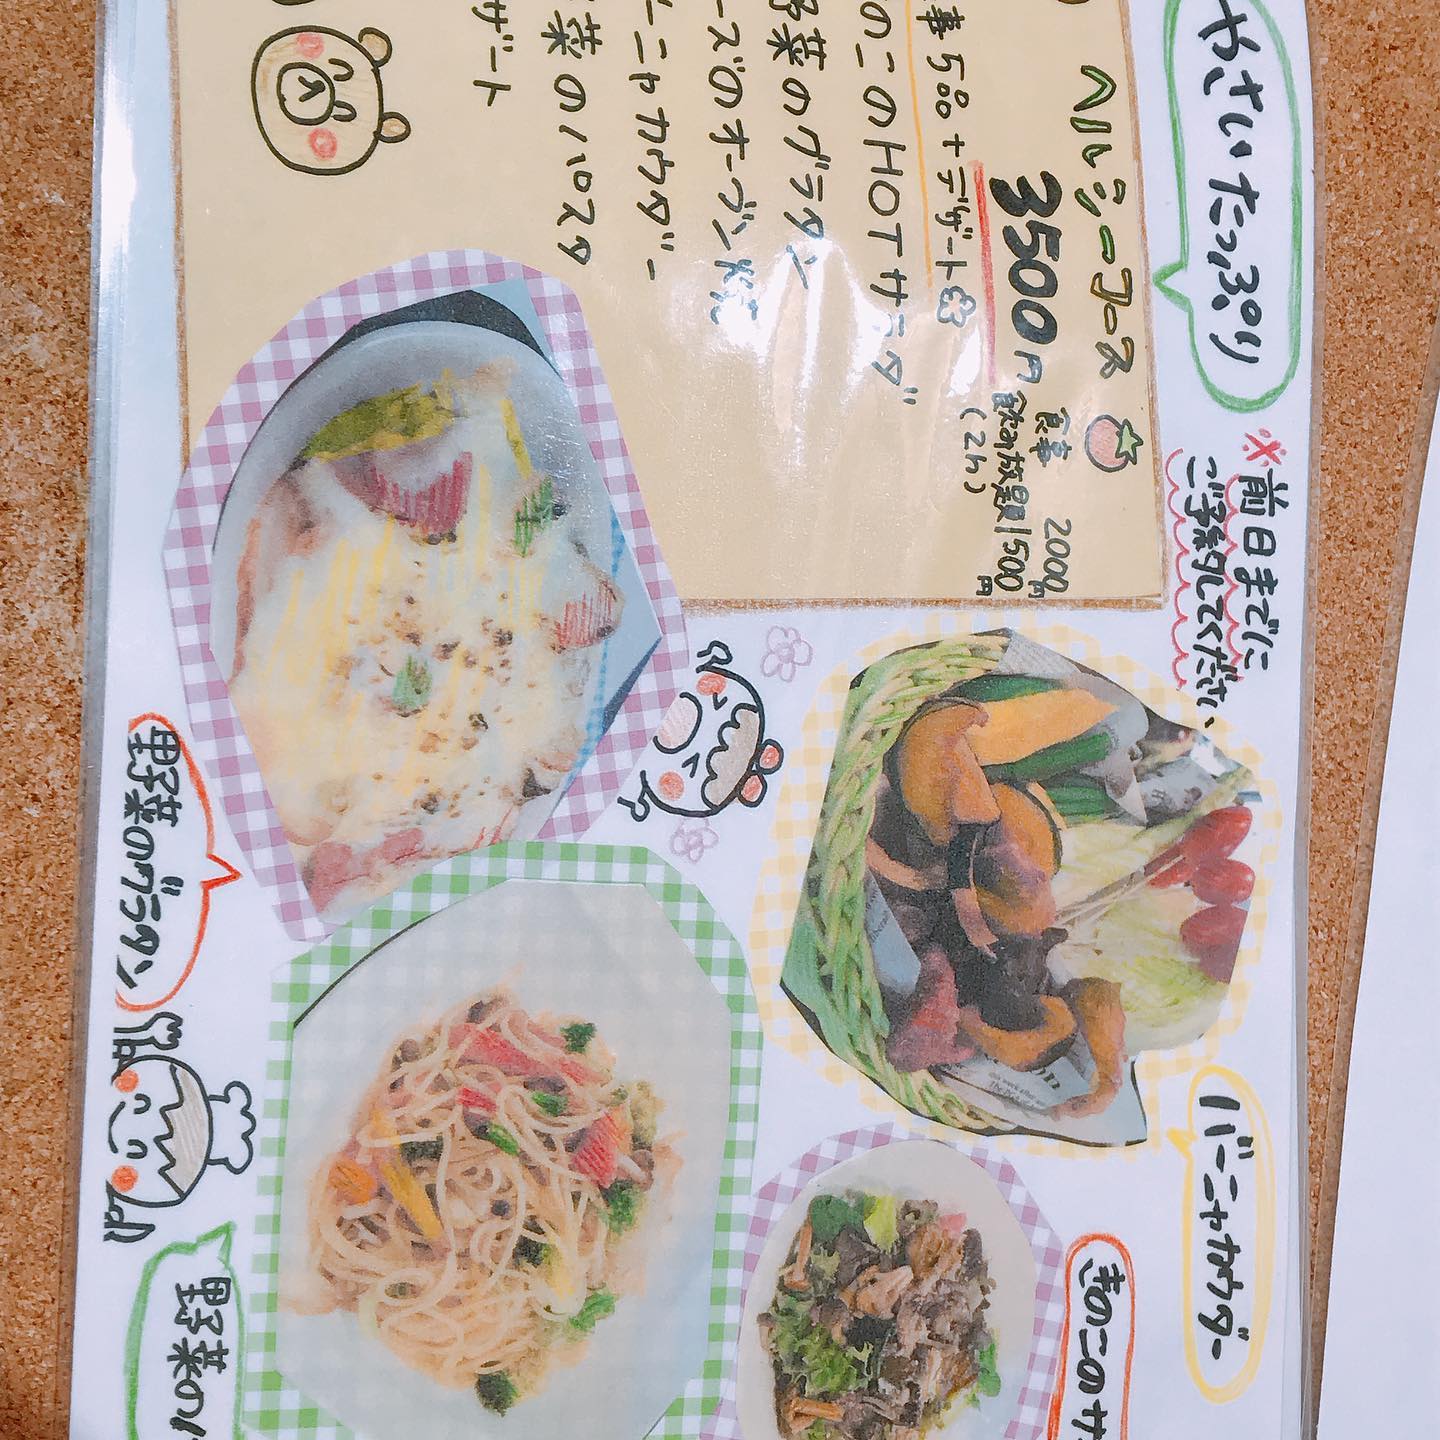 やさいたっぷり
※前日までに
ご予約してください、
ヘルシーコース
3500円
食事 2000円
飲み放題 1500円
(2h)
事5品+デザート
のこのHOTサラダ
野菜のグラタン
ーズのオーブン焼
ーニャカウダー
菜のパスタ
ザート
バーニャカウダー
きのこのサ
野菜のグラタン
野菜の